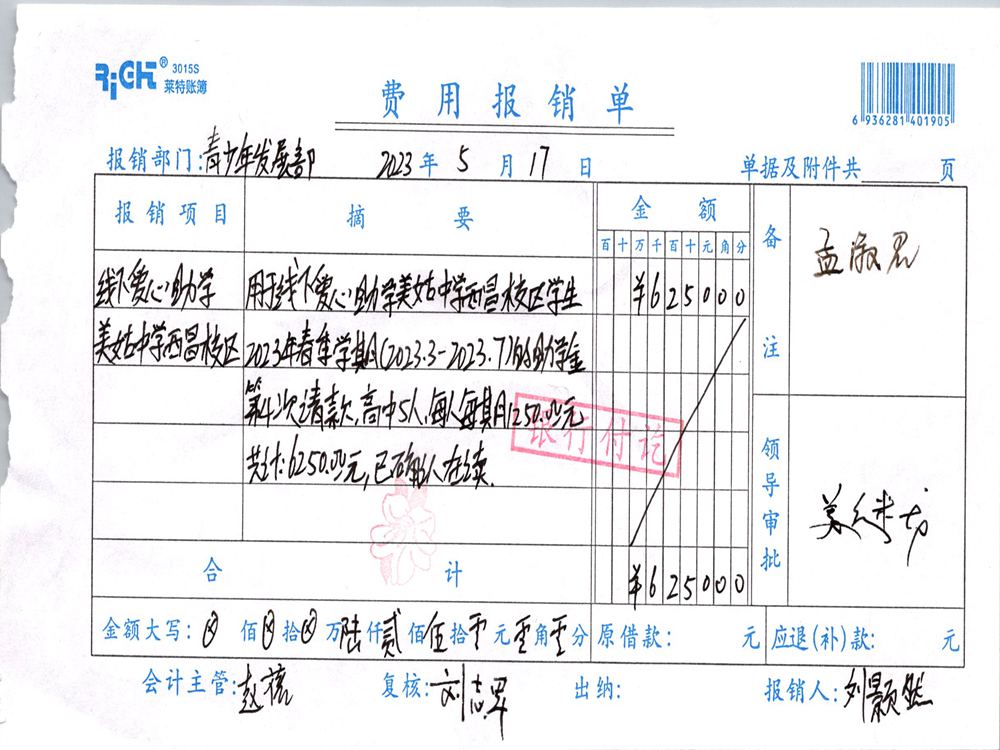 RiGHT® 3015S
莱特账簿
费用报销单
6 936281 401905
报销部门:青少年发展部 2023年5月17日 单据及附件共 页
报销项目 摘要 金额 备注
百十万千百十元角分
孟淑君
线下爱心助学 用于线下爱心助学美姑中学西昌校区学生 ¥625000
美姑中学西昌校区 2023年春季学期(2023.3-2023.7)的助学金
第4次请款,高中5人,每人每期1250.00元
银行付讫
共计:6250.00元,已确认在读.
领导审批
合计 ¥625000
金额大写:⊗佰⊗拾⊗万陆仟贰佰伍拾零元零角零分 原借款: 元 应退(补)款: 元
会计主管: 复核:刘志军 出纳: 报销人:刘颢然